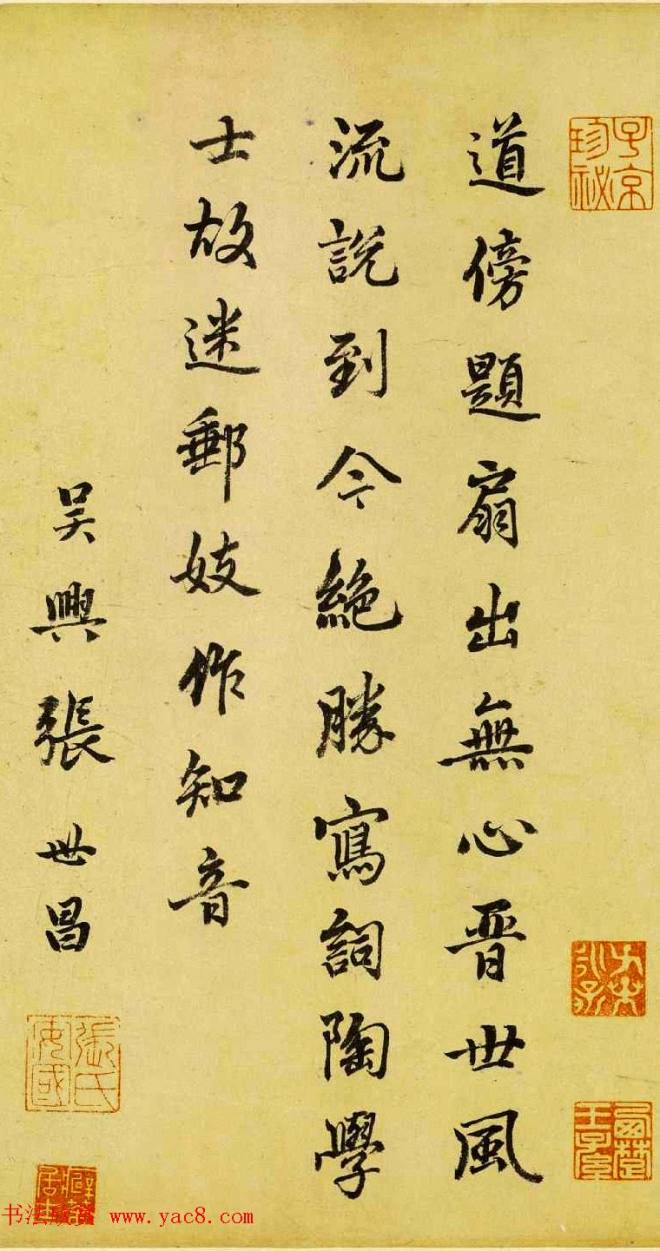 道傍題扇出無心晋世風
流說到今絶勝寫詞陶學
士故迷郵妓作知音
吳興張世昌
子京珍祕
張氏
www.yac8.com